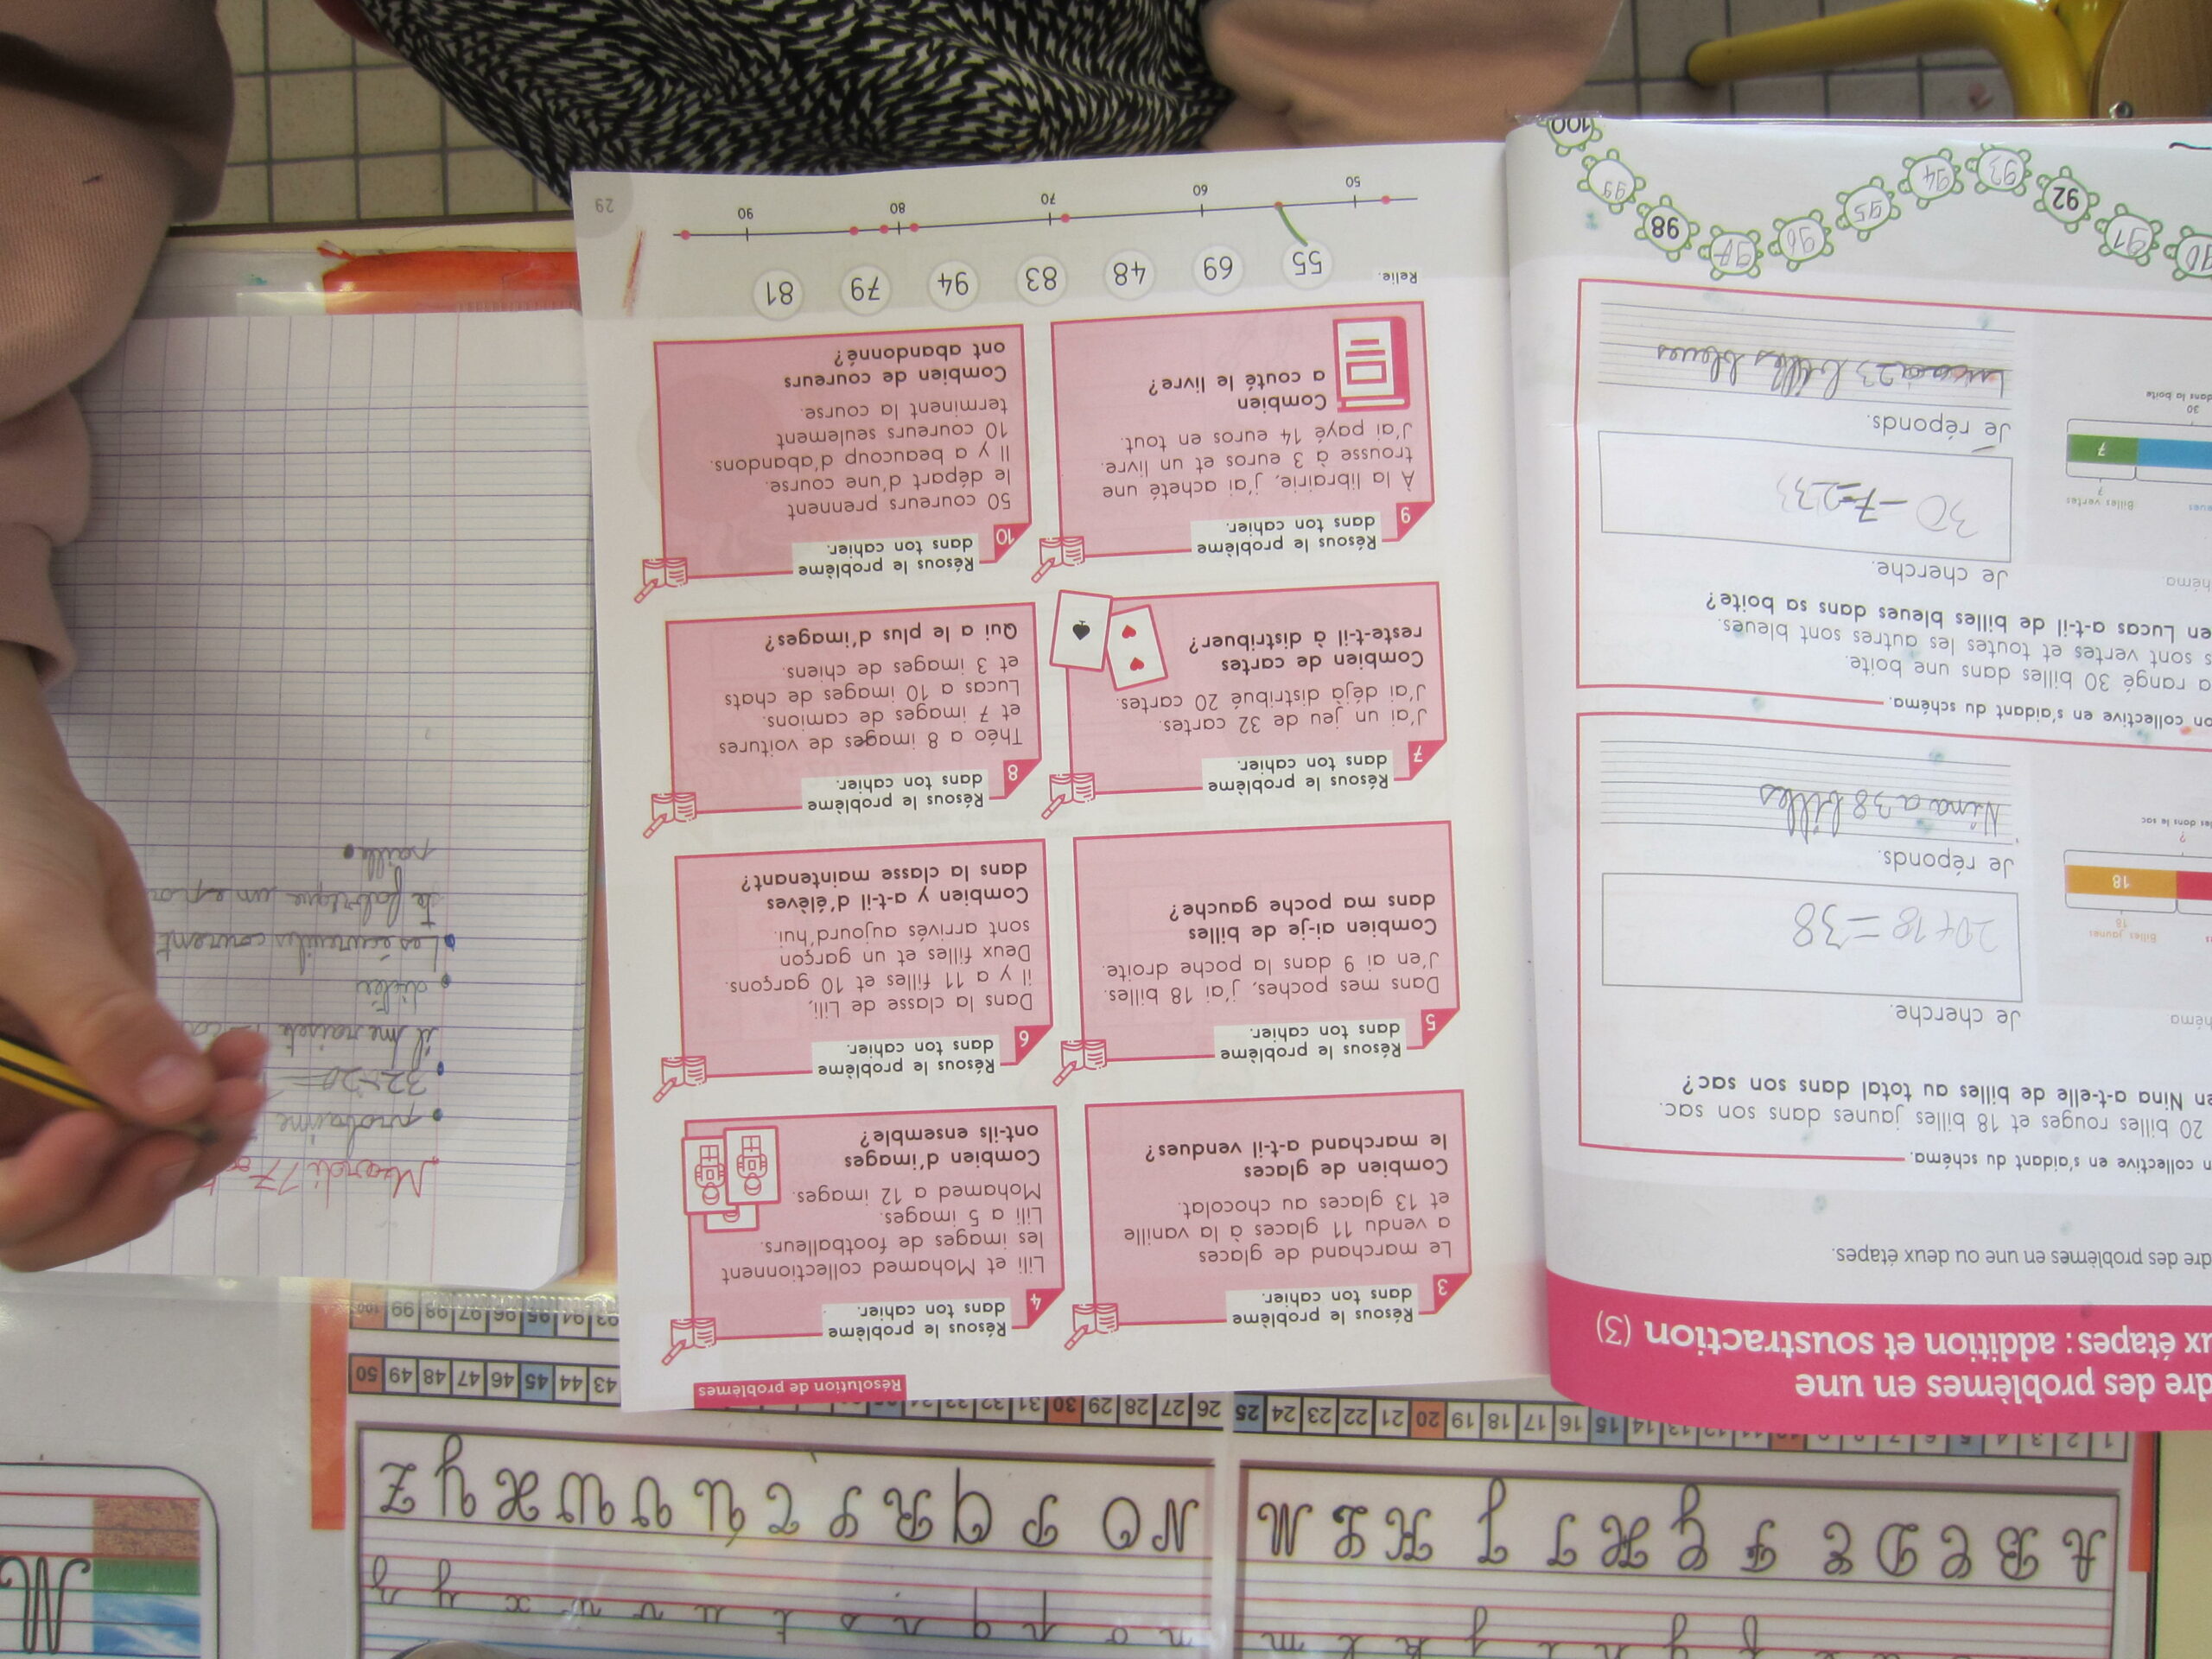 dre des problèmes en une
ux étapes : addition et soustraction (3)
dre des problèmes en une ou deux étapes.
n collective en s'aidant du schéma.
20 billes rouges et 18 billes jaunes dans son sac.
en Nina a-t-elle de billes au total dans son sac ?
héma
Je cherche.
Billes jaunes
18
18
?
les dans le sac
20+18=38
Je réponds.
Nina a 38 billes
on collective en s'aidant du schéma.
a rangé 30 billes dans une boite.
s sont vertes et toutes les autres sont bleues.
en Lucas a-t-il de billes bleues dans sa boite ?
héma
Je cherche.
eues
Billes vertes
7
7
30
dans la boite
30-7=23
Je réponds.
a 23 billes bleues
90
91
92
93
94
95
96
97
98
99
100
Résolution de problèmes
3
Résous le problème
dans ton cahier.
Le marchand de glaces
a vendu 11 glaces à la vanille
et 13 glaces au chocolat.
Combien de glaces
le marchand a-t-il vendues ?
4
Résous le problème
dans ton cahier.
Lili et Mohamed collectionnent
les images de footballeurs.
Lili a 5 images.
Mohamed a 12 images.
Combien d'images
ont-ils ensemble ?
5
Résous le problème
dans ton cahier.
Dans mes poches, j'ai 18 billes.
J'en ai 9 dans la poche droite.
Combien ai-je de billes
dans ma poche gauche ?
6
Résous le problème
dans ton cahier.
Dans la classe de Lili,
il y a 11 filles et 10 garçons.
Deux filles et un garçon
sont arrivés aujourd'hui.
Combien y a-t-il d'élèves
dans la classe maintenant ?
7
Résous le problème
dans ton cahier.
J'ai un jeu de 32 cartes.
J'ai déjà distribué 20 cartes.
Combien de cartes
reste-t-il à distribuer ?
8
Résous le problème
dans ton cahier.
Théo a 8 images de voitures
et 7 images de camions.
Lucas a 10 images de chats
et 3 images de chiens.
Qui a le plus d'images ?
9
Résous le problème
dans ton cahier.
À la librairie, j'ai acheté une
trousse à 3 euros et un livre.
J'ai payé 14 euros en tout.
Combien
a couté le livre ?
10
Résous le problème
dans ton cahier.
50 coureurs prennent
le départ d'une course.
Il y a beaucoup d'abandons.
10 coureurs seulement
terminent la course.
Combien de coureurs
ont abandonné ?
Relie.
55 69 48 83 94 79 81
50 60 70 80 90
29
Mardi
32-20=
Les écureuils courent
Je fabrique un
paille
1 2 3 4 5 6 7 8 9 10 11 12 13 14 15 16 17 18 19 20 21 22 23 24 25 26 27 28 29 30 31 32 33
43 44 45 46 47 48 49 50
93 94 95 96 97 98 99 100
A B C D E F G H I J K L M N O P Q R S T U V W X Y Z
m n o p q r s t u v w x y z